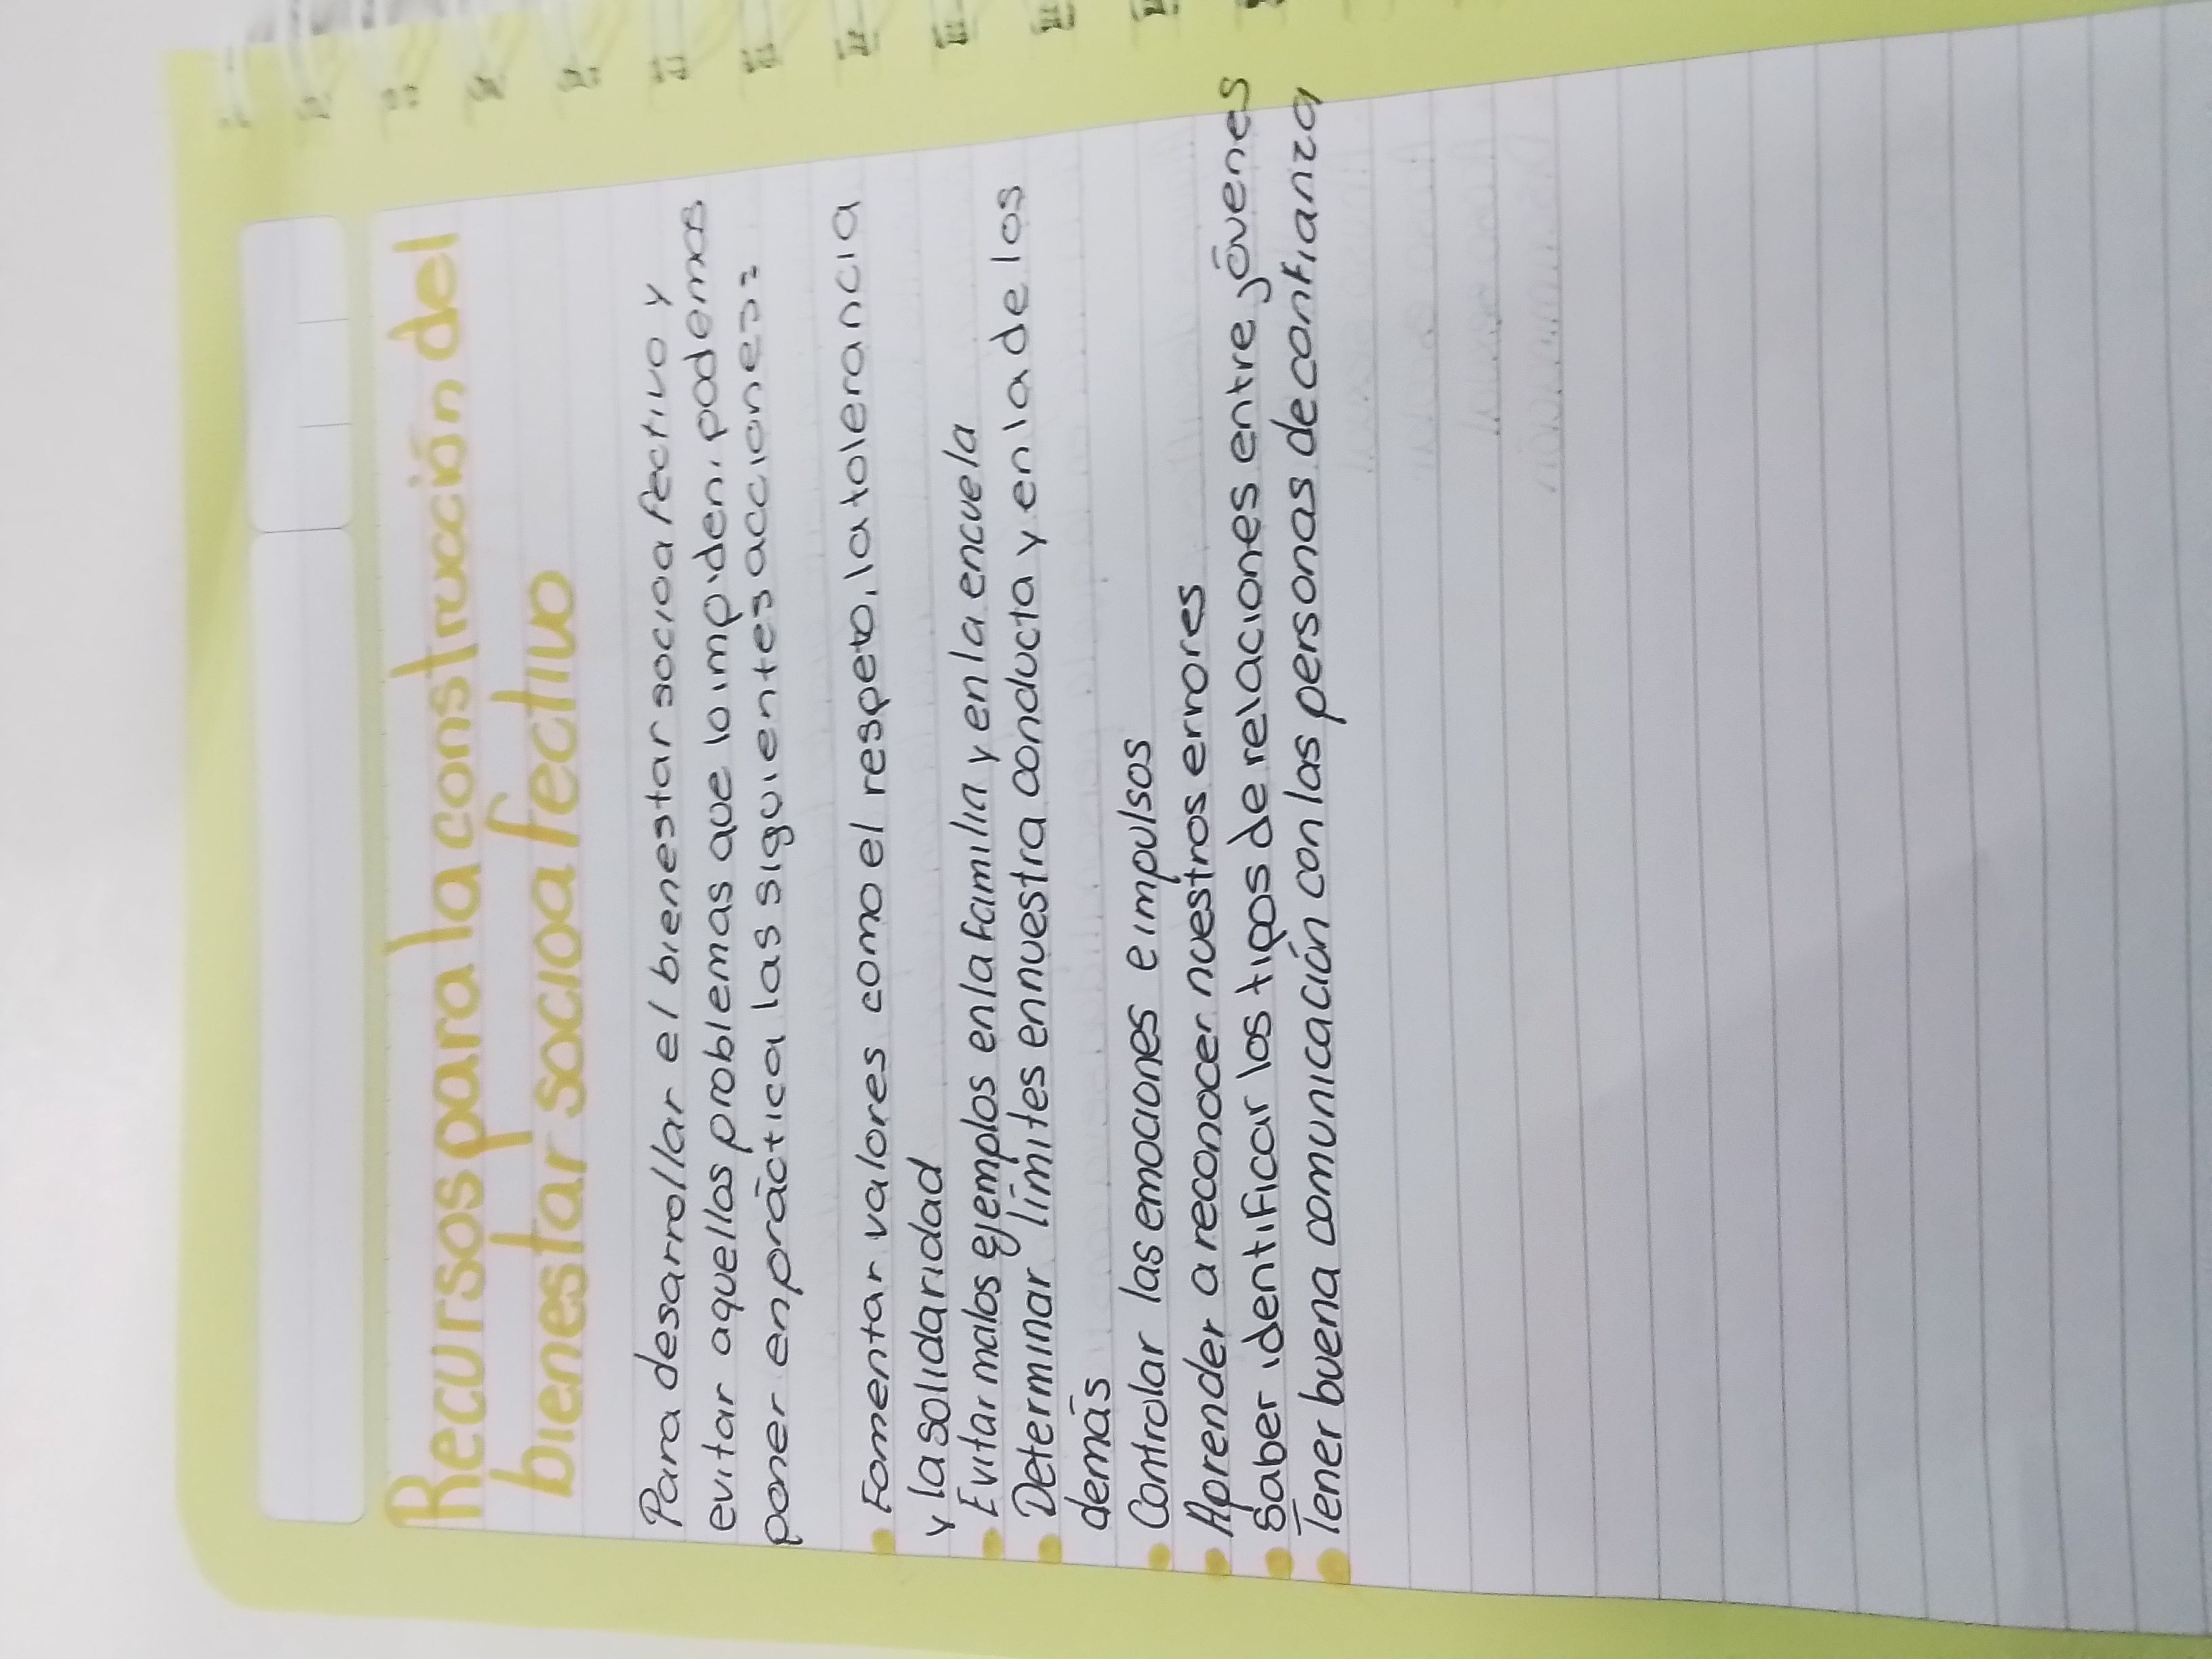 Recursos para la construcción del
bienestar socioafectivo
Para desarrollar el bienestar socioafectivo y
evitar aquellos problemas que lo impiden, podemos
poner en práctica las siguientes acciones:
• Fomentar valores como el respeto, la tolerancia
y la solidaridad
• Evitar malos ejemplos en la familia y en la encuela
• Determinar límites en nuestra conducta y en la de los
demás
• Controlar las emociones e impulsos
• Aprender a reconocer nuestros errores
• Saber identificar los tipos de relaciones entre jóvenes
• Tener buena comunicación con las personas de confianza